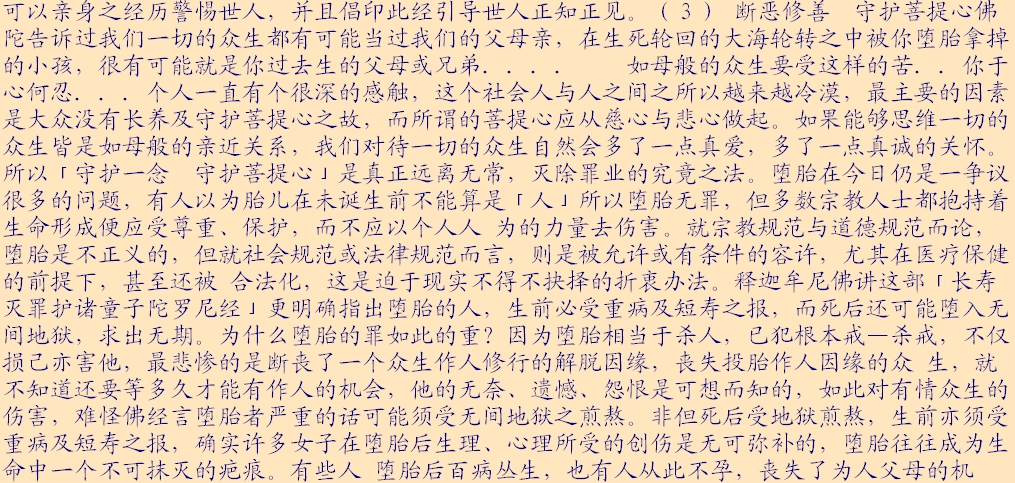 可以亲身之经历警惕世人，并且倡印此经引导世人正知正见。（3） 断恶修善 守护菩提心佛
陀告诉过我们一切的众生都有可能当过我们的父母亲，在生死轮回的大海轮转之中被你堕胎拿掉
的小孩，很有可能就是你过去生的父母或兄弟．．．． 如母般的众生要受这样的苦．．你于
心何忍．．．个人一直有个很深的感触，这个社会人与人之间之所以越来越冷漠，最主要的因素
是大众没有长养及守护菩提心之故，而所谓的菩提心应从慈心与悲心做起。如果能够思维一切的
众生皆是如母般的亲近关系，我们对待一切的众生自然会多了一点真爱，多了一点真诚的关怀。
所以「守护一念 守护菩提心」是真正远离无常，灭除罪业的究竟之法。堕胎在今日仍是一争议
很多的问题，有人以为胎儿在未诞生前不能算是「人」所以堕胎无罪，但多数宗教人士都抱持着
生命形成便应受尊重、保护，而不应以个人人 为的力量去伤害。就宗教规范与道德规范而论，
堕胎是不正义的，但就社会规范或法律规范而言，则是被允许或有条件的容许，尤其在医疗保健
的前提下，甚至还被 合法化，这是迫于现实不得不抉择的折衷办法。释迦牟尼佛讲这部「长寿
灭罪护诸童子陀罗尼经」更明确指出堕胎的人，生前必受重病及短寿之报，而死后还可能堕入无
间地狱，求出无期。为什么堕胎的罪如此的重？因为堕胎相当于杀人，已犯根本戒—杀戒，不仅
损己亦害他，最悲惨的是断丧了一个众生作人修行的解脱因缘，丧失投胎作人因缘的众 生，就
不知道还要等多久才能有作人的机会，他的无奈、遗憾、怨恨是可想而知的，如此对有情众生的
伤害，难怪佛经言堕胎者严重的话可能须受无间地狱之煎熬。非但死后受地狱煎熬，生前亦须受
重病及短寿之报，确实许多女子在堕胎后生理、心理所受的创伤是无可弥补的，堕胎往往成为生
命中一个不可抹灭的疤痕。有些人 堕胎后百病丛生，也有人从此不孕，丧失了为人父母的机